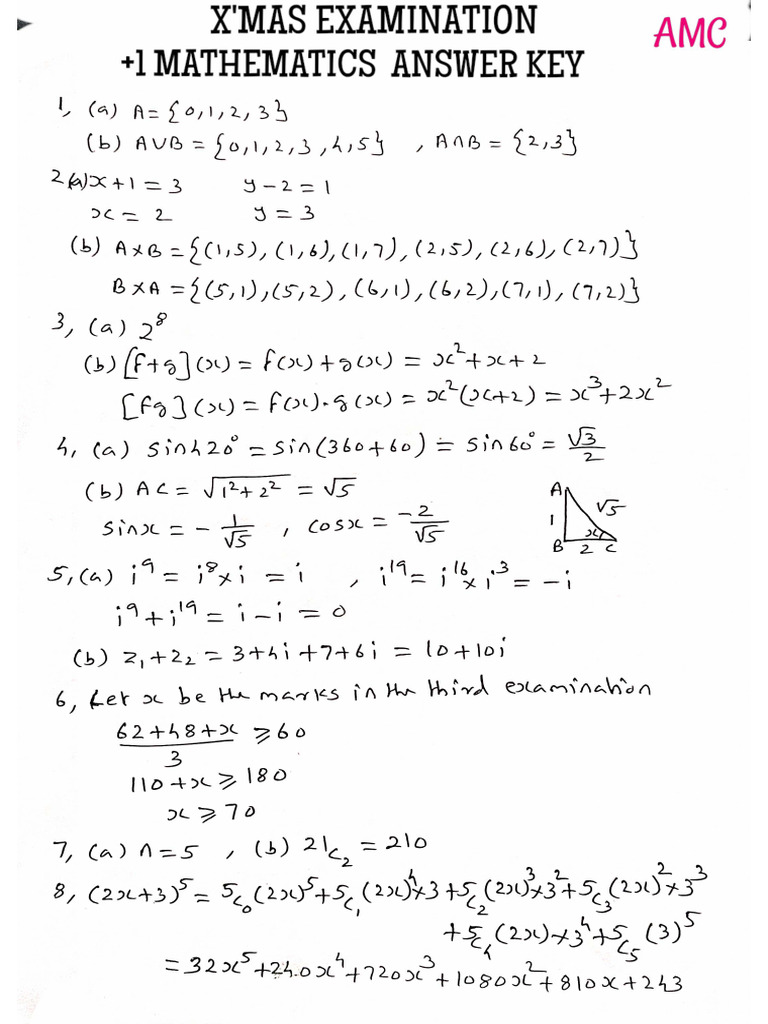 X'MAS EXAMINATION
AMC
+1 MATHEMATICS ANSWER KEY
1, (a) A = {0,1,2,3}
(b) A∪B = {0,1,2,3,4,5} , A∩B = {2,3}
2(a) x+1 = 3 y-2 = 1
x = 2 y = 3
(b) A×B = {(1,5), (1,6), (1,7), (2,5), (2,6), (2,7)}
B×A = {(5,1), (5,2), (6,1), (6,2), (7,1), (7,2)}
3, (a) 2⁸
(b) [f+g](x) = f(x)+g(x) = x²+x+2
[fg](x) = f(x).g(x) = x²(x+2) = x³+2x²
4, (a) sin420° = sin(360+60) = sin60° = √3/2
(b) AC = √(1²+2²) = √5
sinx = -1/√5 , cosx = -2/√5
A
√5
1
x
B 2 C
5, (a) i⁹ = i⁸×i = i , i¹⁹ = i¹⁶×i³ = -i
i⁹+i¹⁹ = i-i = 0
(b) z₁+z₂ = 3+4i+7+6i = 10+10i
6, Let x be the marks in the third examination
(62+48+x)/3 ⩾ 60
110+x ⩾ 180
x ⩾ 70
7, (a) n=5 , (b) 21C₂ = 210
8, (2x+3)⁵ = 5C₀(2x)⁵+5C₁(2x)⁴×3+5C₂(2x)³×3²+5C₃(2x)²×3³
+5C₄(2x)×3⁴+5C₅(3)⁵
= 32x⁵+240x⁴+720x³+1080x²+810x+243